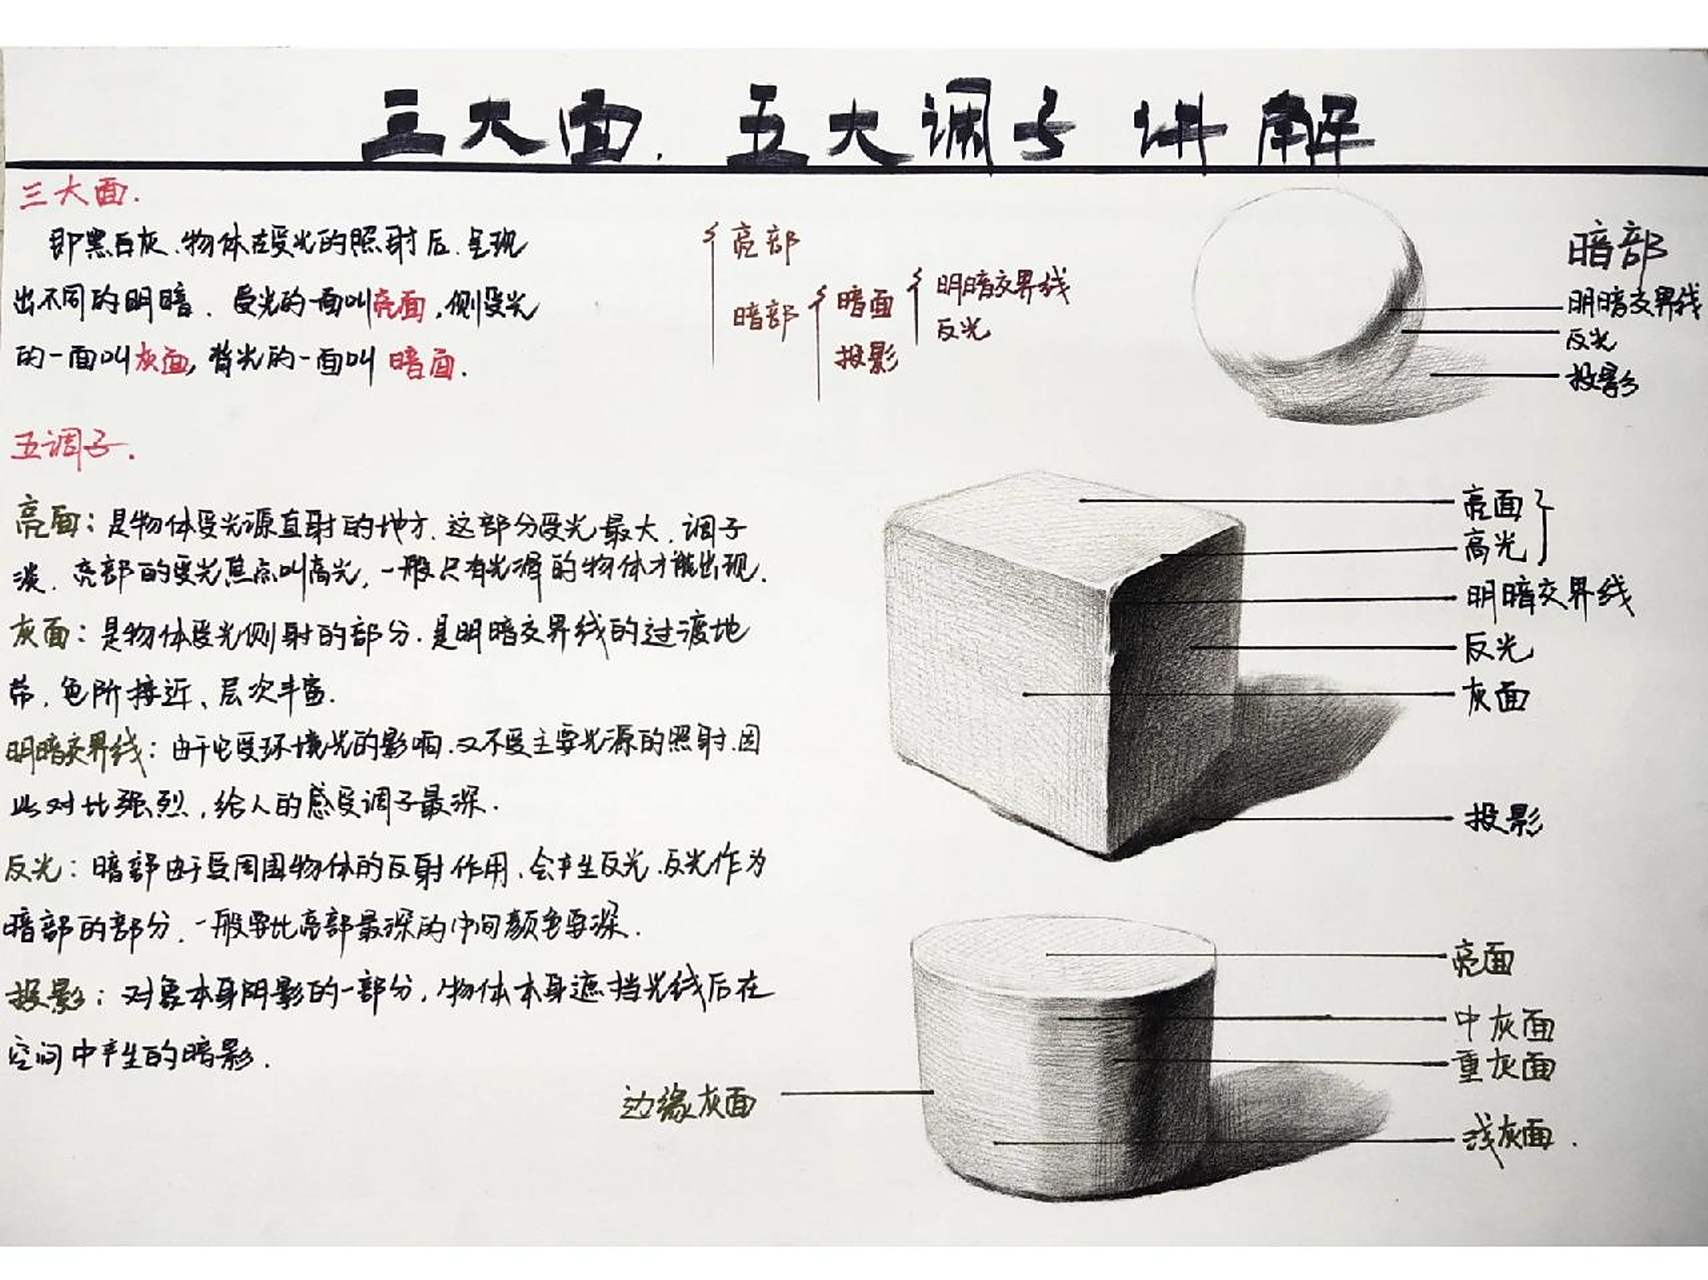 三大面、五大调子讲解
三大面.
即黑白灰、物体在受光的照射后,呈现
出不同的明暗、受光的一面叫亮面,侧受光
的一面叫灰面,背光的一面叫暗面.
亮部
暗部
暗面
投影
明暗交界线
反光
暗部
明暗交界线
反光
投影
五调子.
亮面:是物体受光源直射的地方.这部分受光最大、调子
淡、亮部的受光焦点叫高光,一般只有光泽的物体才能出现.
灰面:是物体受光侧射的部分.是明暗交界线的过渡地
带,色阶接近、层次丰富.
明暗交界线:由于它受环境光的影响.又不受主要光源的照射.因
此对比强烈,给人的感受调子最深.
反光:暗部由于受周围物体的反射作用、会产生反光.反光作为
暗部的部分、一般要比亮部最深的中间颜色要深.
投影:对象本身阴影的一部分,物体本身遮挡光线后在
空间中产生的暗影.
亮面
高光
明暗交界线
反光
灰面
投影
亮面
中灰面
重灰面
浅灰面.
边缘灰面